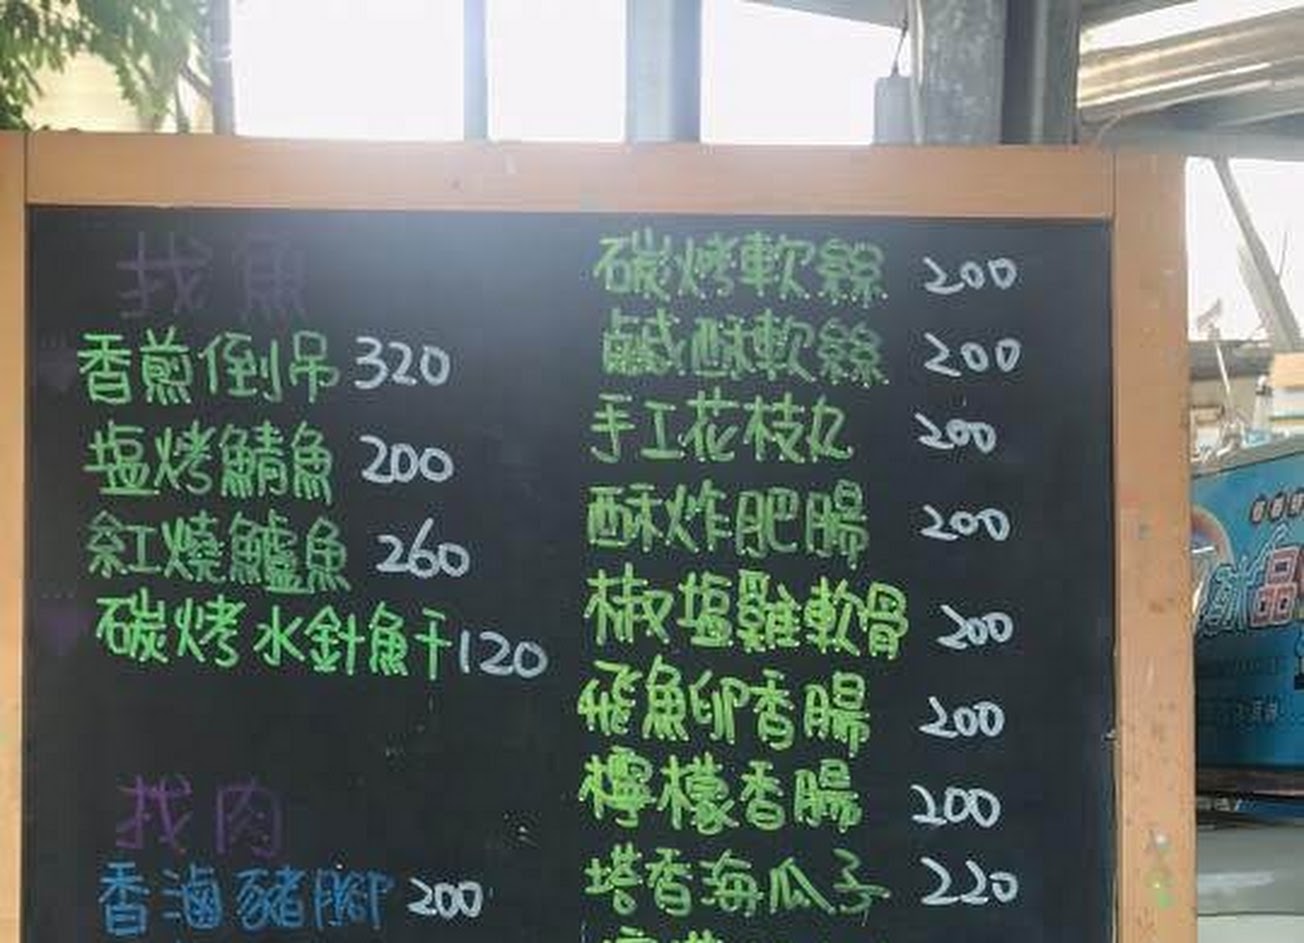 找魚
香煎倒吊 320
塩烤鯖魚 200
紅燒鱸魚 260
碳烤水針魚干 120
找肉
香滷豬腳 200
碳烤軟絲 200
鹹酥軟絲 200
手工花枝丸 200
酥炸肥腸 200
椒塩雞軟骨 200
飛魚卵香腸 200
檸檬香腸 200
塔香海瓜子 220
冰品